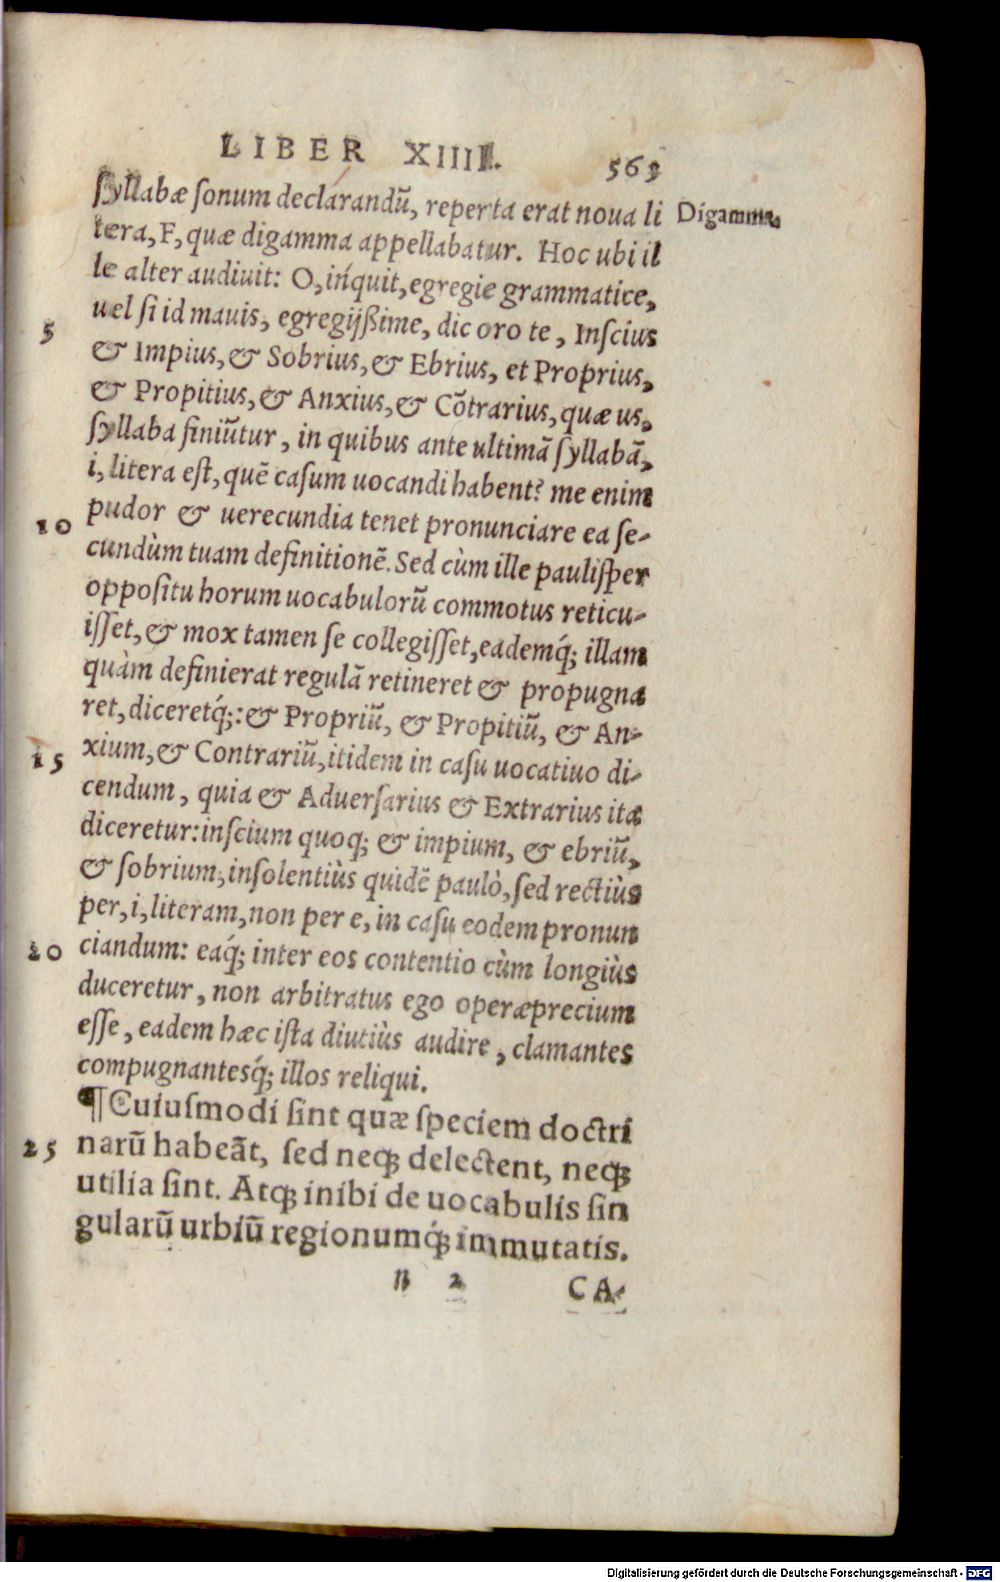 LIBER XIIII. 563
ſyllabæ ſonum declarandū, reperta erat noua li Digamma.
tera, F, quæ digamma appellabatur. Hoc ubi il
le alter audiuit: O, inquit, egregie grammatice,
5 uel ſi id mauis, egregijßime, dic oro te, Inſcius
& Impius, & Sobrius, & Ebrius, et Proprius,
& Propitius, & Anxius, & Cōtrarius, quæ us,
ſyllaba finiūtur, in quibus ante ultimā ſyllabā,
i, litera eſt, quē caſum uocandi habent? me enim
10 pudor & uerecundia tenet pronunciare ea ſe-
cundùm tuam definitionē. Sed cùm ille pauliſper
oppoſitu horum uocabulorū commotus reticu-
iſſet, & mox tamen ſe collegiſſet, eademq́; illam
quàm definierat regulā retineret & propugna
ret, diceretq́;: & Propriū, & Propitiū, & An-
15 xium, & Contrariū, itidem in caſu uocatiuo di-
cendum, quia & Aduerſarius & Extrarius ita
diceretur: inſcium quoq; & impium, & ebriū,
& ſobrium, inſolentiùs quidē paulò, ſed rectiùs
per, i, literam, non per e, in caſu eodem pronun
20 ciandum: eaq́; inter eos contentio cùm longiùs
duceretur, non arbitratus ego operæprecium
eſſe, eadem hæc iſta diutiùs audire, clamantes
compugnantesq́; illos reliqui.
¶ Cuiuſmodi ſint quæ ſpeciem doctri
25 narū habeāt, ſed neq; delectent, neq;
utilia ſint. Atq; inibi de uocabulis ſin
gularū urbiū regionumq́; immutatis.
B 2 CA-
Digitalisierung gefördert durch die Deutsche Forschungsgemeinschaft - DFG